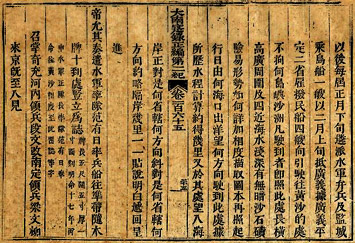 以後每屆正月下旬遴派水軍弁兵及監城
乘烏船一艘以二月上旬抵廣義據廣義平
定二省雇撥民船四艘向引駛往黃沙的處
不拘何島嶼沙洲凡駛到者即照此處長橫
高廣周圍及四近海水淺深有無暗沙石磧
險易形勢如何詳加相度描取圖本再照起
行日由何海口出洋望何方向駛到此處據
所歷水程計算約得幾里又於其處望入海
大南寔錄正編第二紀 卷百六十五
岸正對是何省轄何方向斜對是何省轄何
方向約略隔岸幾里一一貼說明白遞回呈
進
帝允其奏遣水軍率隊范有日率兵船往準帶隨木
牌十到處豎立為誌牌長五尺闊五寸厚一寸面刻明命十七年丙
申水軍正隊長率隊范有日奉命往黃沙相度至此留誌等字
召掌奇充河西領兵段文敏南定領兵梁文柳
來京既至入見